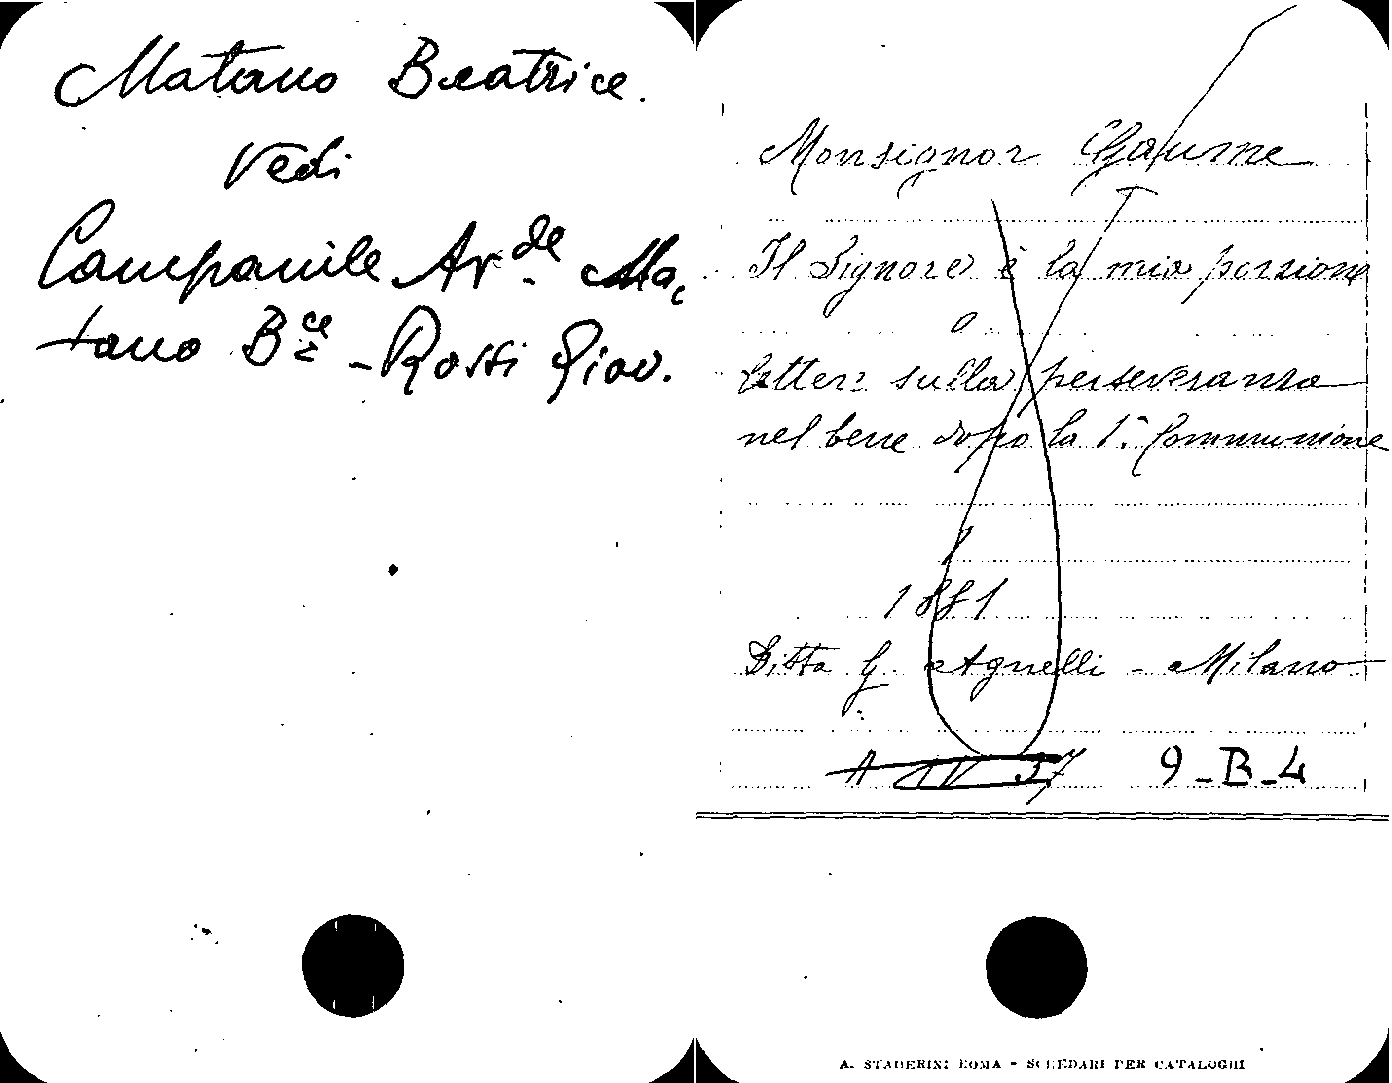 Matano Beatrice.
Vedi
Campanile Ar.de Ma,
tano B.ce - Rossi Giov.
Monsignor Gaume
Il Signore è la mia porzione
o
lettere sulla perseveranza
nel bene dopo la 1.a Communione
1
1881
Ditta G. Agnelli - Milano
A IV 37 9-B-4
A. STADERINI ROMA - SCHEDARI PER CATALOGHI